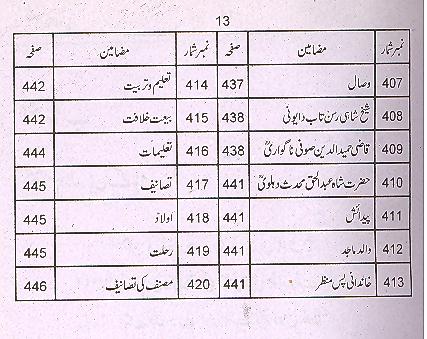 13
نمبر شمار مضامین صفحہ نمبر شمار مضامین صفحہ
407 وصال 437 414 تعلیم و تربیت 442
408 شیخ شاہی رسن تاب دایونی 438 415 بیعت خلافت 442
409 قاضی حمید الدین صوفی ناگواریؒ 438 416 تعلیمات 444
410 حضرت شاہ عبدالحق محدث دہلویؒ 441 417 تصانیف 445
411 پیدائش 441 418 اولاد 445
412 والد ماجد 441 419 رحلت 445
413 خاندانی پس منظر 441 420 مصنف کی تصانیف 446